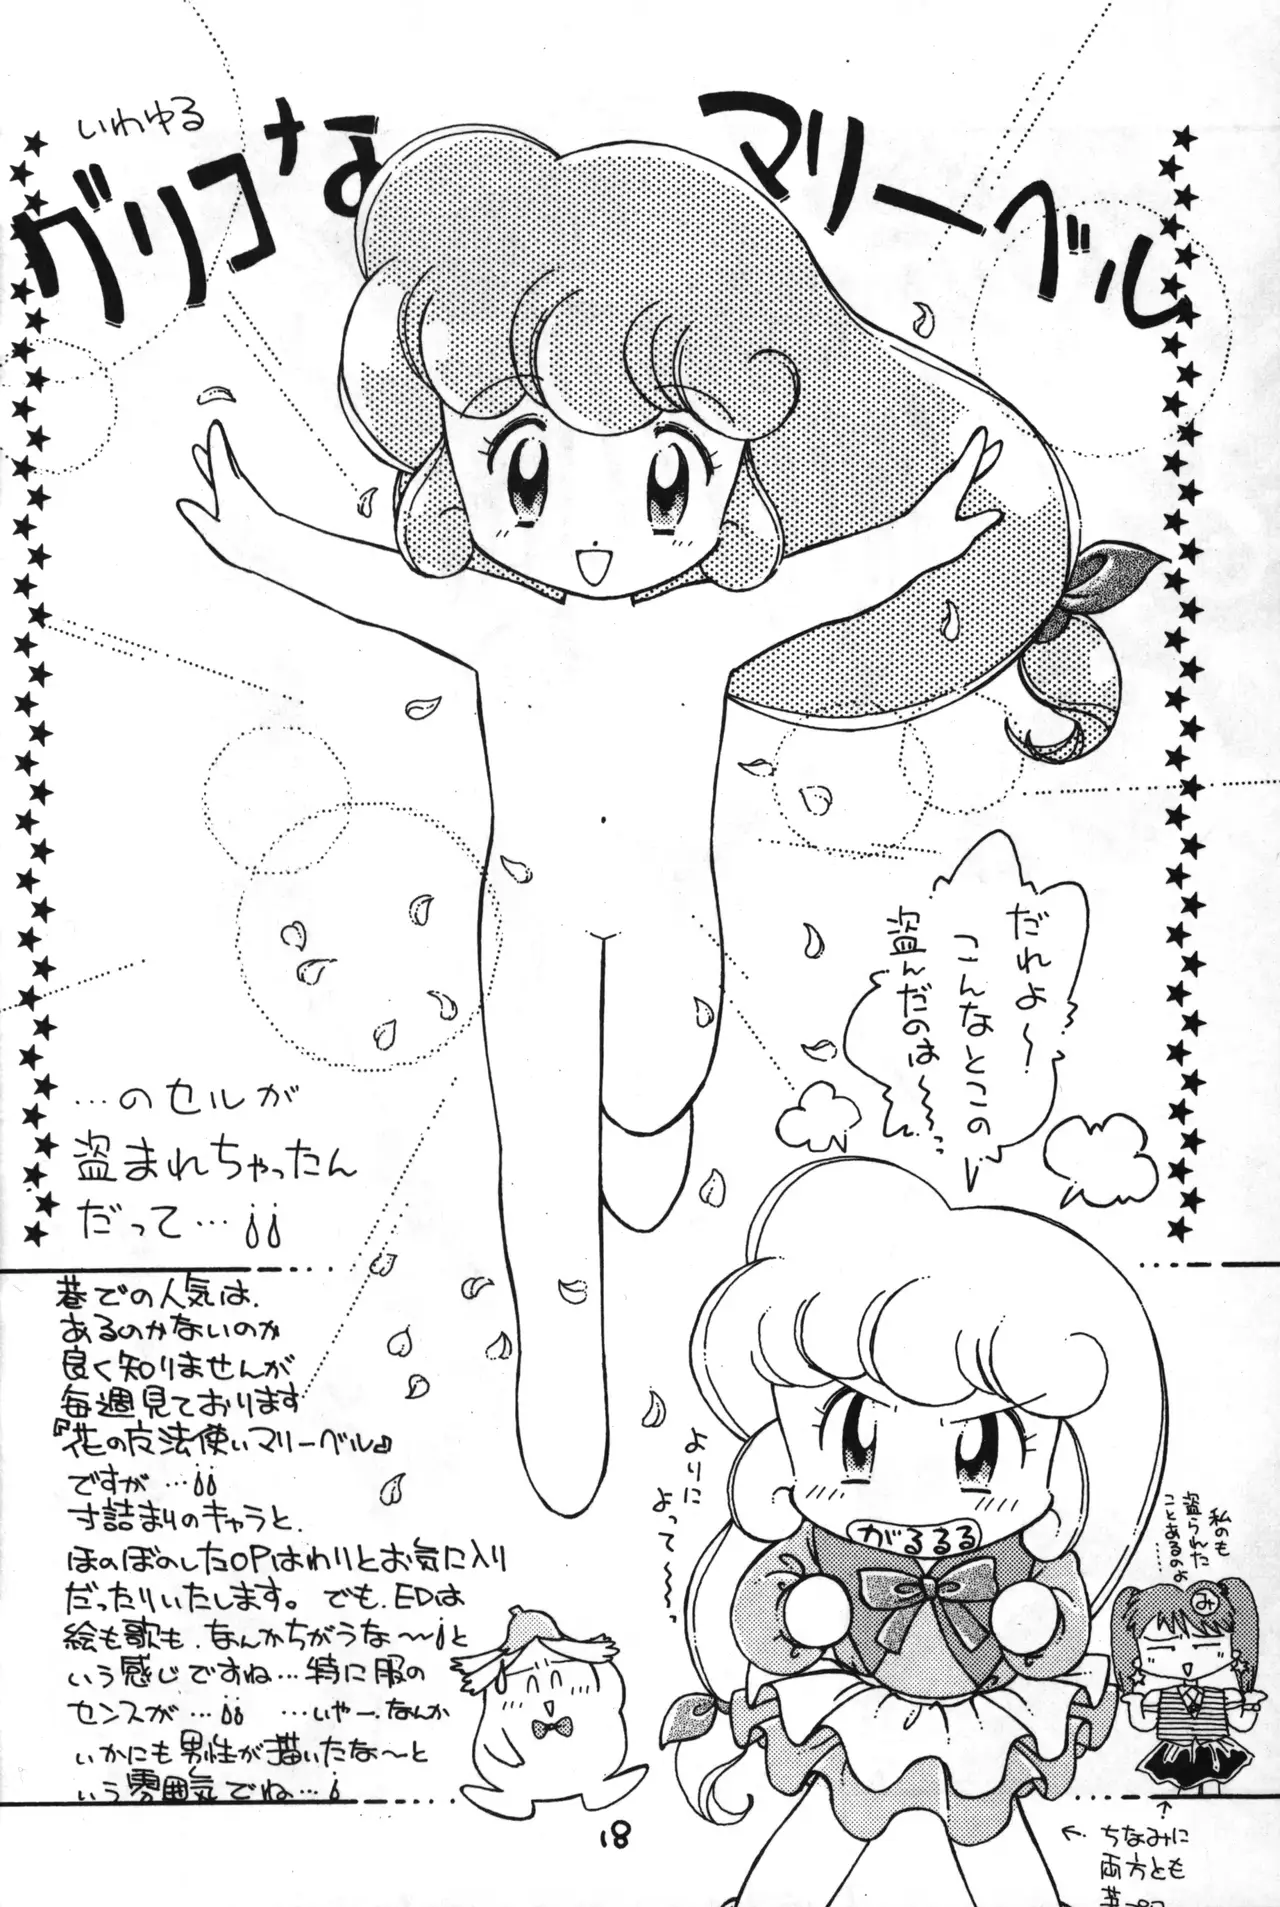 いわゆる
グリコな
マリーベル
だれよ〜！
こんなとこの
盗んだのは〜〜っ
…のセルが
盗まれちゃったん
だって…
巷での人気は、
あるのかないのか
良く知りませんが
毎週見ております
『花の魔法使いマリーベル』
ですが…
寸詰まりのキャラと、
ほのぼのしたOPはわりとお気に入り
だったりいたします。でも、EDは
絵も歌も、なんかちがうな〜と
いう感じですね…特に服の
センスが… …いやー、なんか
いかにも男性が描いたな〜と
いう雰囲気でね…
よりに
よって〜〜っ
がるるる
私のも
盗られた
ことあるのよ
……
み
18
↑
← ちなみに
両方とも